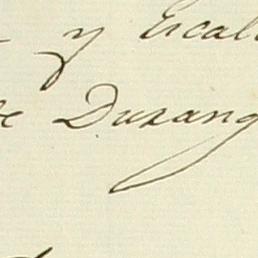 y Escal
de Durang